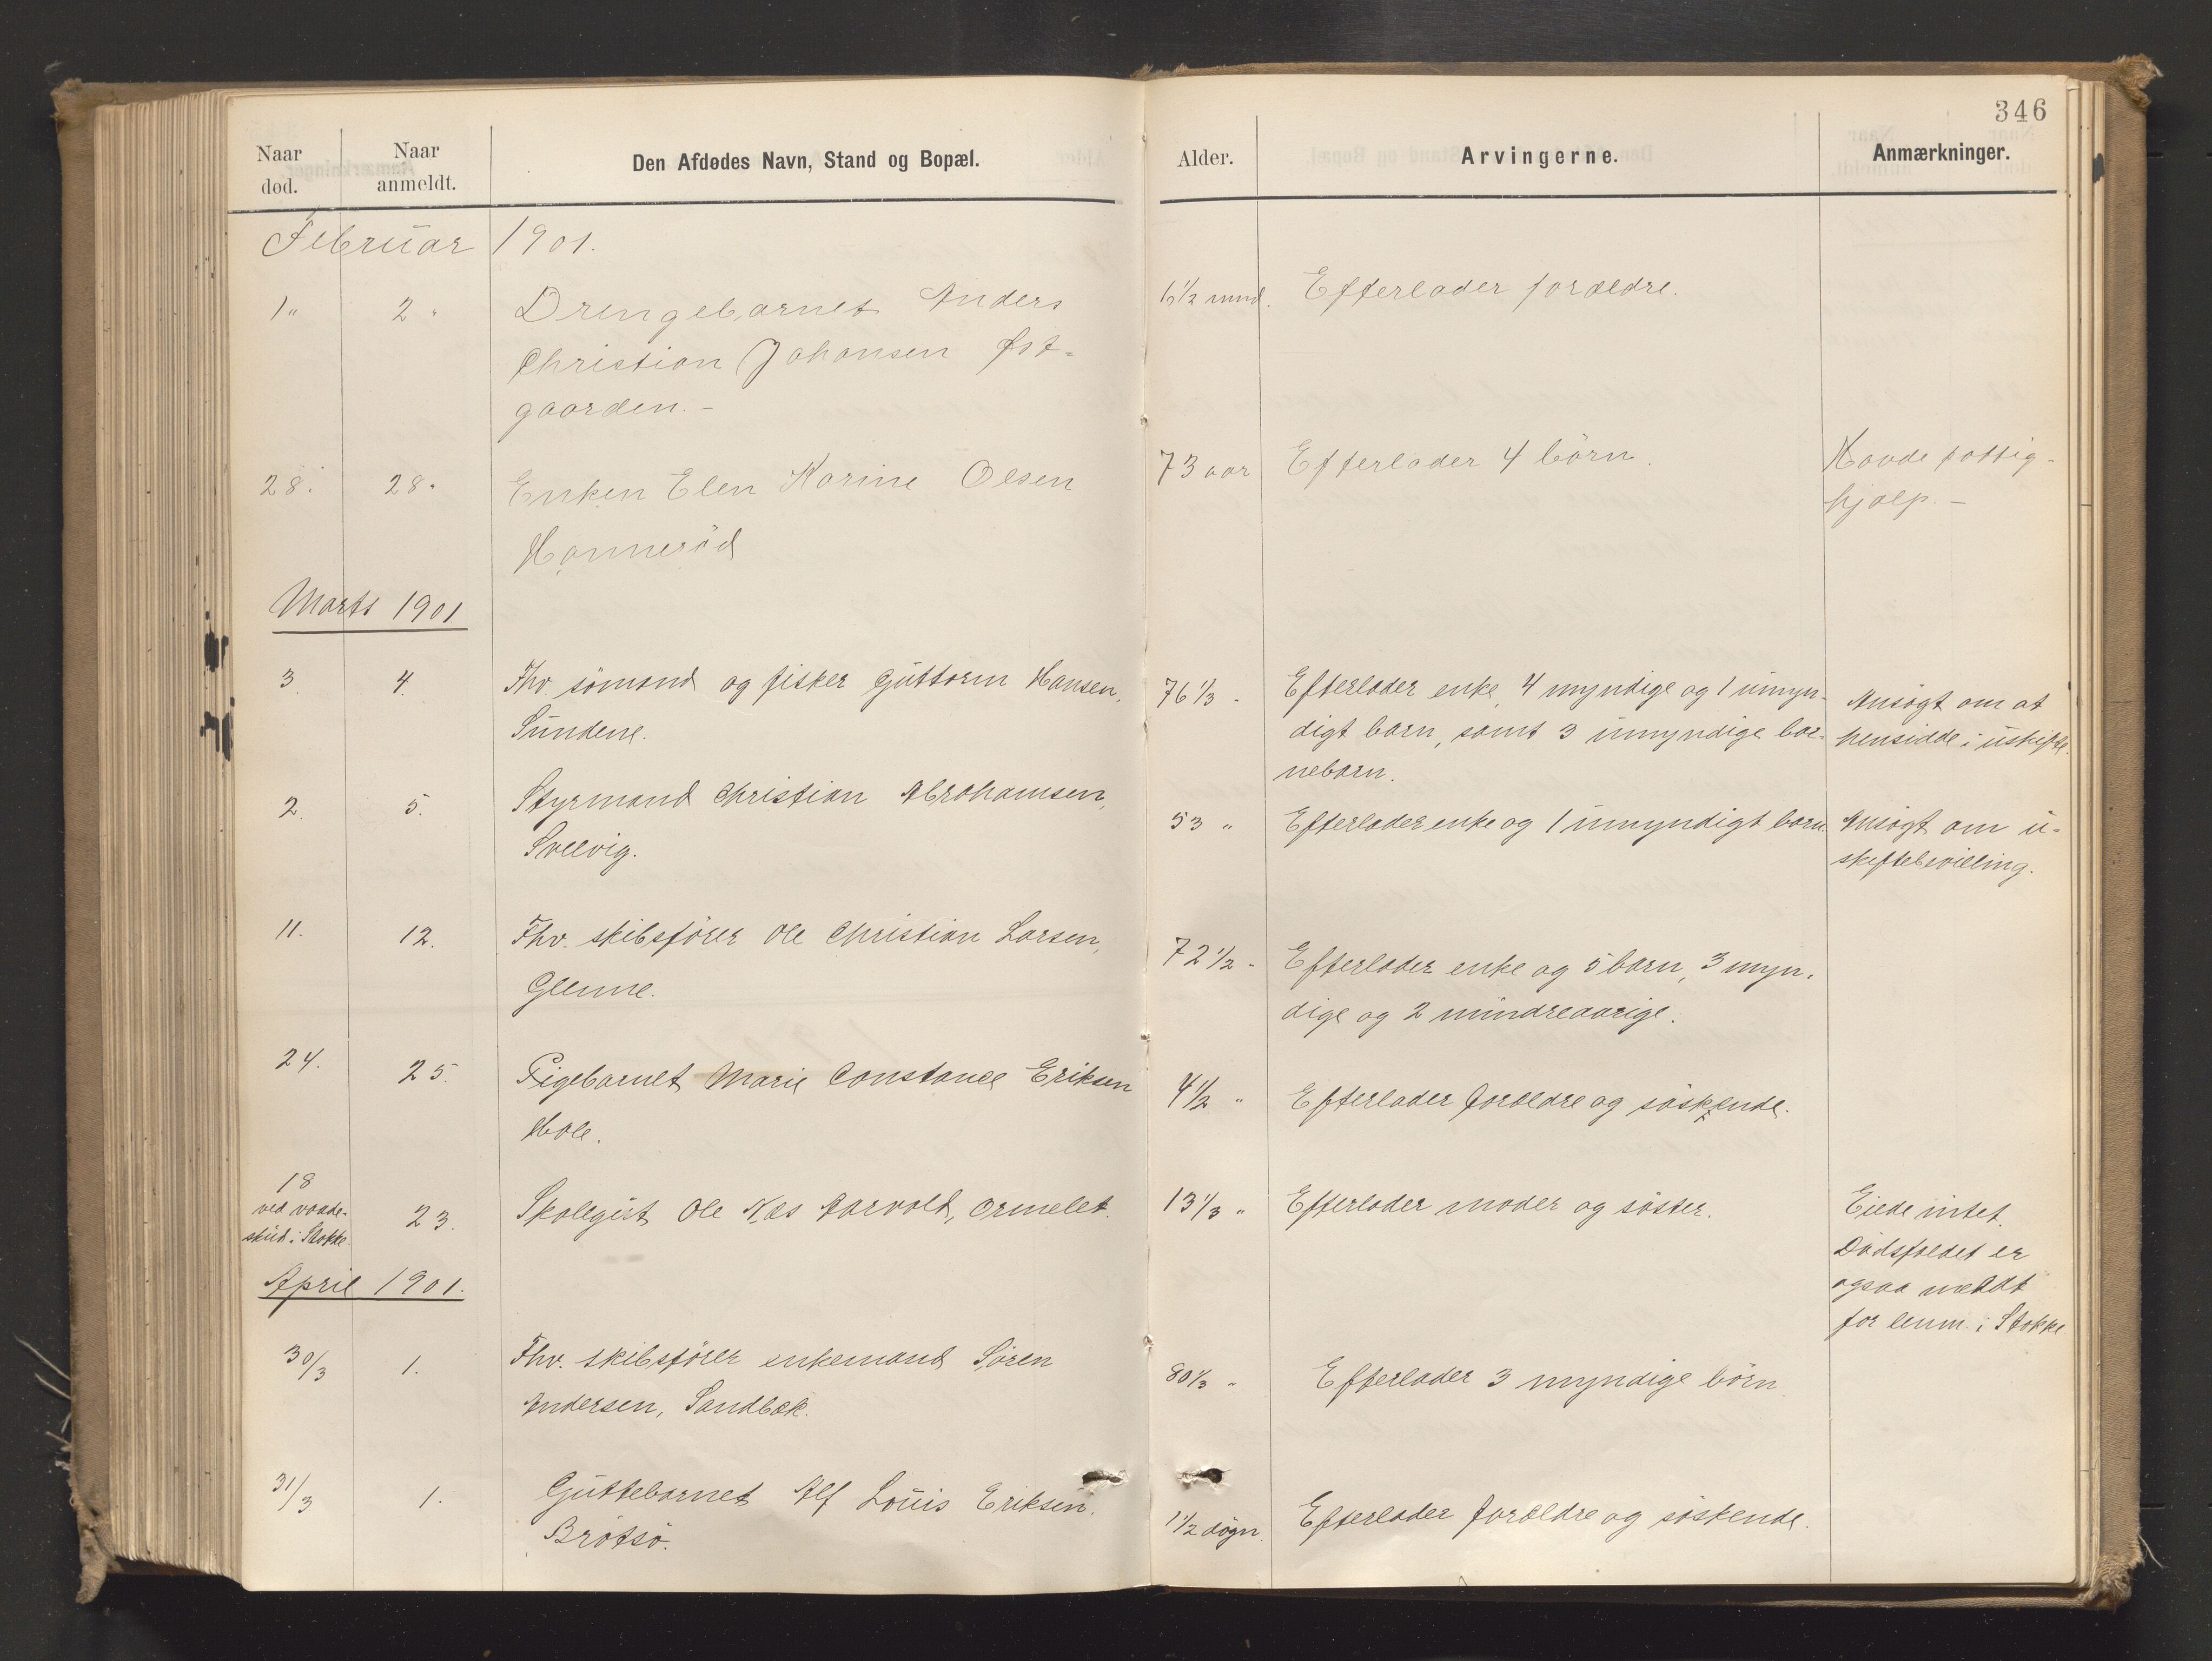 346
Naar død. Naar anmeldt. Den Afdødes Navn, Stand og Bopæl. Alder. Arvingerne. Anmærkninger.
Februar 1901.
1 " 2 " Drengebarnet Anders
Christian Johansen Øst-
gaarden. -
6 1/2 mnd. Efterlader forældre.
28. 28. Enken Elen Karine Olsen
Hannerød
73 aar Efterlader 4 børn.
Havde fattig-
hjælp. -
Marts 1901.
3. 4. Fhv. sømand og fisker Guttorm Hansen,
Sundene.
76 1/3 " Efterlader enke, 4 myndige og 1 umyn-
digt barn, samt 3 umyndige bør-
nebørn.
Ansøgt om at
hensidde i uskifte.
2. 5. Styrmand Christian Abrahamsen,
Svelvig.
53 " Efterlader enke og 1 umyndigt barn.
Ansøgt om u-
skiftebevilling.
11. 12. Fhv. skibsfører Ole Christian Larsen,
Glenne.
72 1/2 " Efterlader enke og 5 børn, 3 myn-
dige og 2 mindreaarige.
24. 25. Pigebarnet Marie Constance Eriksen
Hole.
4 1/2 " Efterlader forældre og søskende.
18 ved vaade-
skud i Stokke 23. Skolegut Ole Aarvold, Ormelet.
13 1/3 " Efterlader moder og søster.
Eiede intet.
Dødsfaldet er
ogsaa meldt
for lensm. i Stokke
April 1901.
30/3 1. Fhv. skibsfører enkemand Søren
Andersen, Sandbæk.
80 1/3 " Efterlader 3 myndige børn
31/3 1. Guttebarnet Alf Louis Eriksen.
Brøtsø.
1 1/2 døgn. Efterlader forældre og søskende.